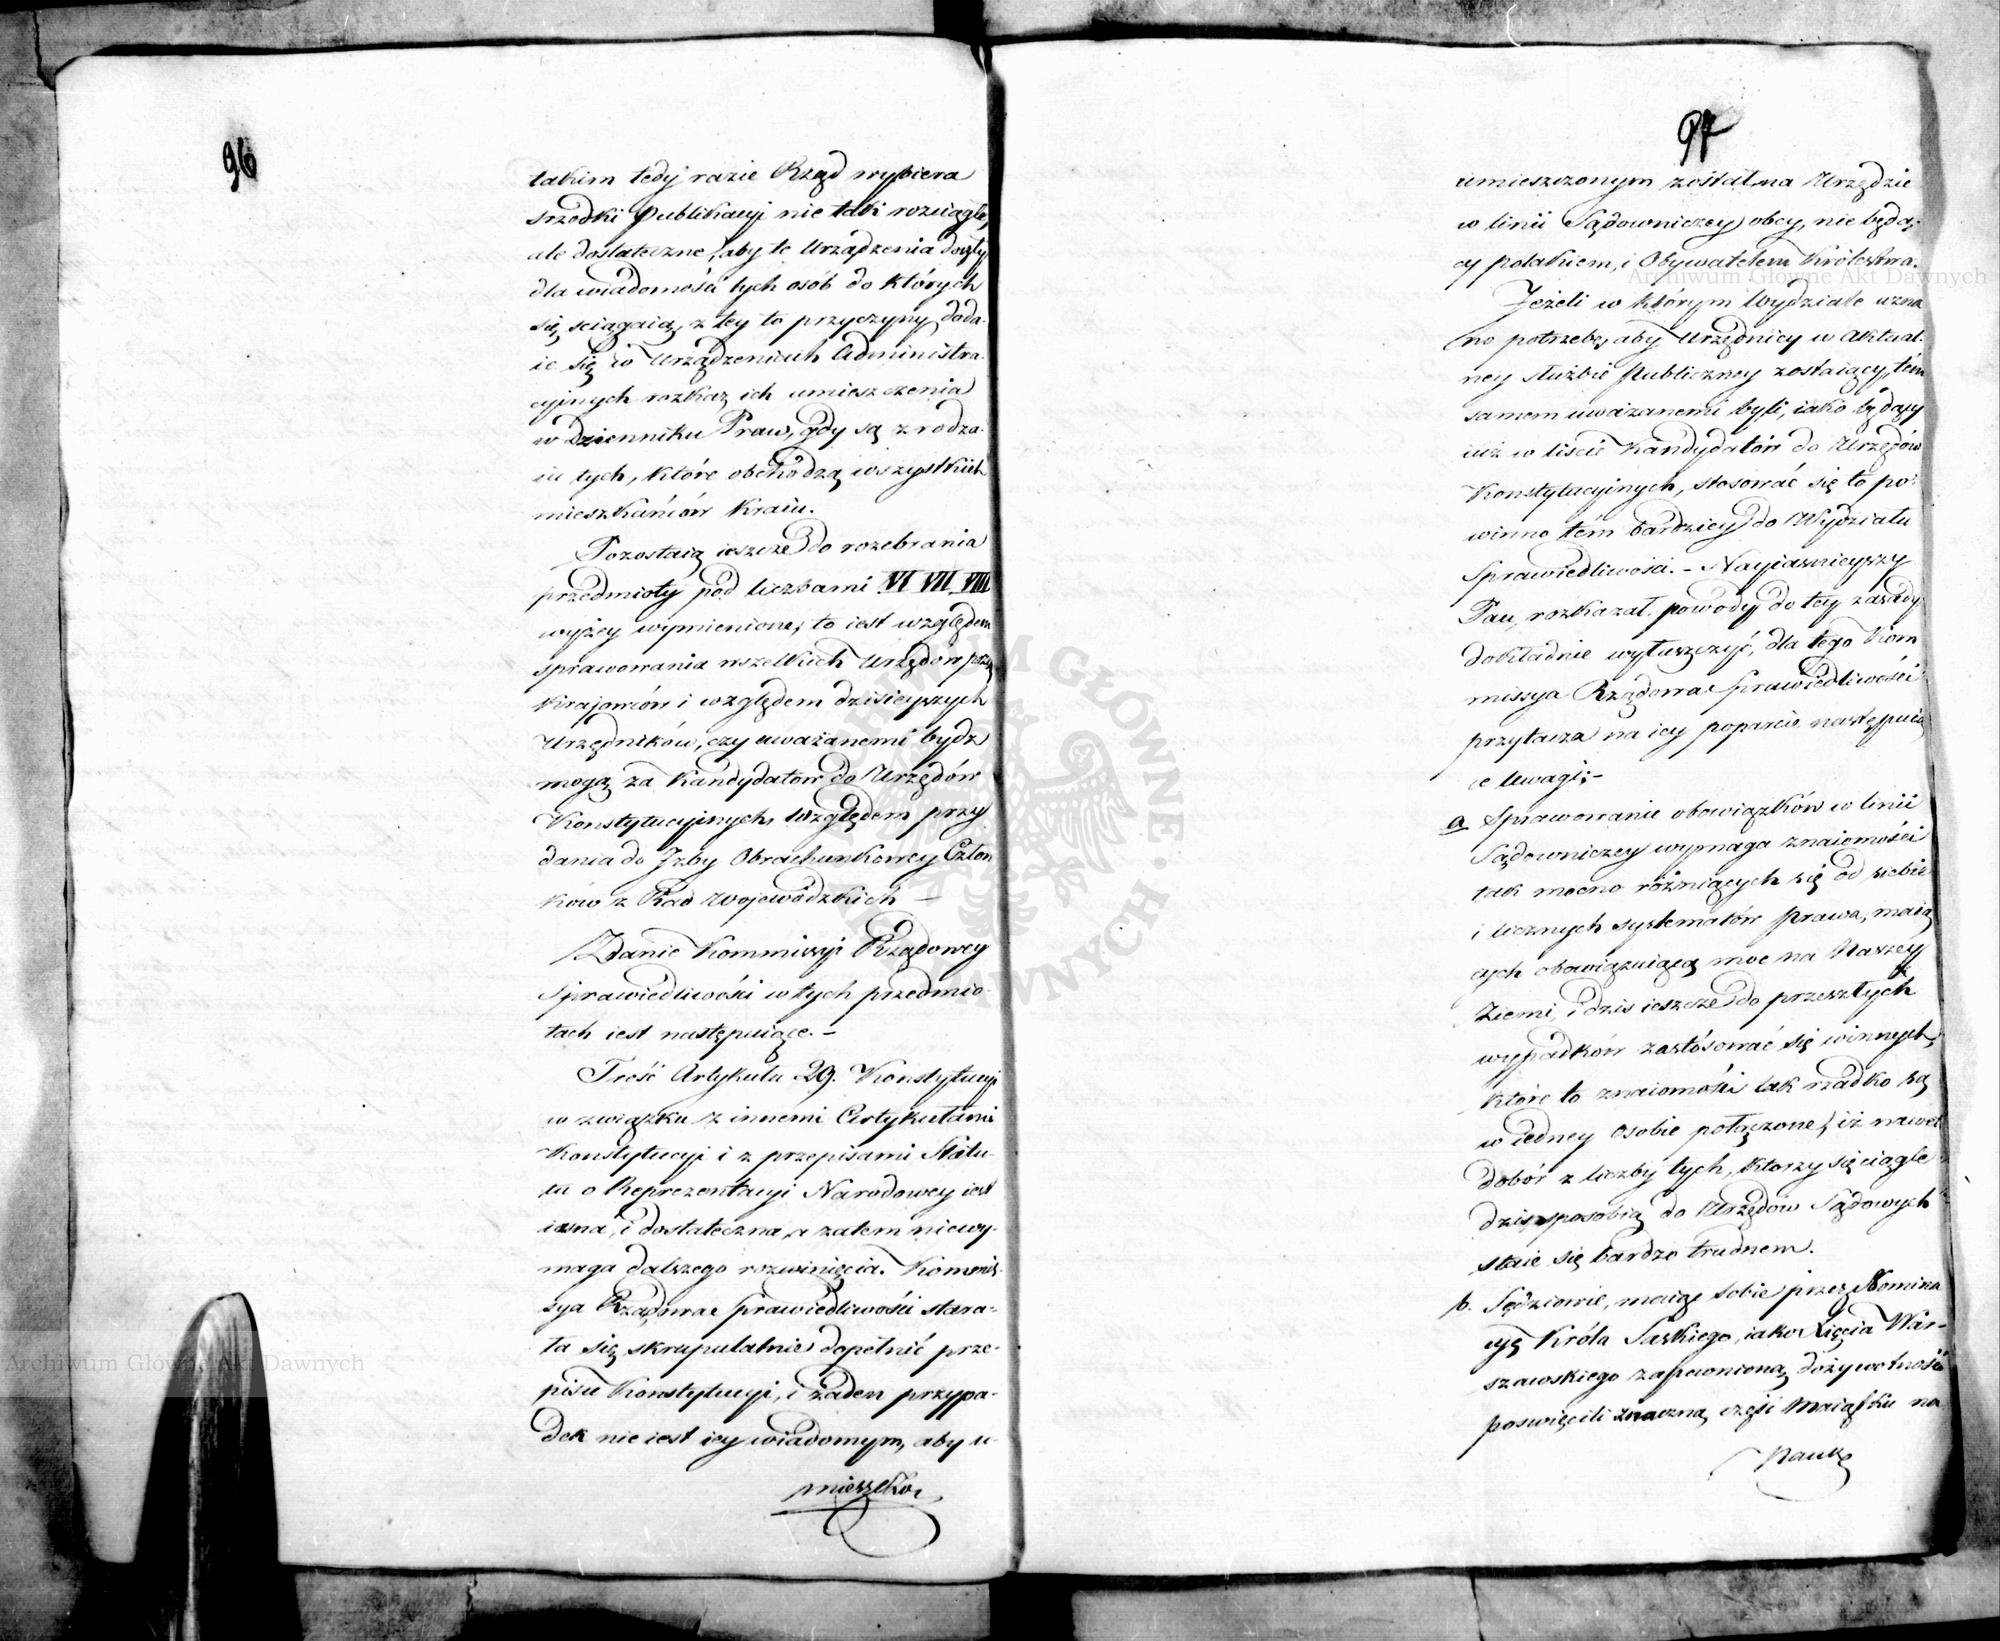 96
takim tedy razie Rząd wybiera
srzodki Publikacyi nie taki rozciągłe,
ale dostateczne, aby te Urządzenia doszły
dla wiadomości tych osób do których
się sciągaią, z tey to przyczyny doda-
ie się w Urządzeniach Administra-
cyinych rozkaz ich umieszczenia
w Dzienniku Praw, gdy są z rodza-
iu tych, które obchodzą wszystkich
mieszkańców Kraiu.
Pozostaią ieszcze do rozebrania
przedmioty pod liczbami VI VII VIII
wyżey wymienione, to iest względem
sprawowania wszelkich Urzędów przez
Krajowców i względem dzisieyszych
Urzędników, czy uważanemi bydź
mogą za Kandydatów do Urzędów
Konstytucyinych, względem przy
dania do Izby Obrachunkowey Człon
ków z Rad Wojewódzkich —
Zdanie Kommissyi Rządowey
Sprawiedliwości w tych przedmio-
tach iest następuiące. —
Treść Artykułu 29. Konstytucyi
w związku z innemi Artykułami
Konstytucyi i z przepisami Statu-
tu o Reprezentacyi Narodowey iest
iasna, i dostateczna, a zatem niewy-
maga dalszego rozwinięcia. Kommis-
sya Rządowa Sprawiedliwości stara-
ła się skrupulatnie dopełnić prze-
pisu Konstytucyi, i żaden przypa-
dek nie iest iey wiadomym, aby u-
mieszczo
97
umieszczonym został na Urzędzie
w linii Sądowniczey obcy, nie będą-
cy polakiem, i Obywatelem Królestwa.
Jeżeli w którym Wydziale uzna
no potrzebę, aby Urzędnicy w aktual-
ney służbie Publiczney zostaiący, tém
samem uważanemi byli, iako będący
iuż w liście Kandydatów do Urzędów
Konstytucyinych, stosować się to po-
winno tém bardziey do Wydziału
Sprawiedliwości. - Nayiaśnieyszy
Pan, rozkazał powody do tey zasady
dokładnie wyłuszczyć, dla tego Kom
missya Rządowa Sprawiedliwości
przytacza na iey poparcie następuią
ce Uwagi: -
a Sprawowanie obowiązków w linii
Sądowniczey wymaga znaiomości
tak mocno różniących się od siebie
i licznych systematów Prawa, maią
cych obowiązuiącą moc na Naszey
Ziemi, i dziś ieszcze do przeszłych
wypadków zastósować się winnych,
które to znaiomości tak rzadko są
w iedney osobie połączone, iż nawet
dobór z liczby tych, którzy się ciągle
dziś sposobią do Urzędów Sądowych
staie się bardzo trudnem.
b. Sędziowie, maiąc sobie przez Nomina
cyę Króla Saskiego, iako Xięcia War-
szawskiego zapewnioną dożywotność
poswięcili znaczną część Maiątku na
Nauk
Archiwum Główne Akt Dawnych
Archiwum Główne Akt Dawnych
ARCHIWUM GŁÓWNE AKT DAWNYCH